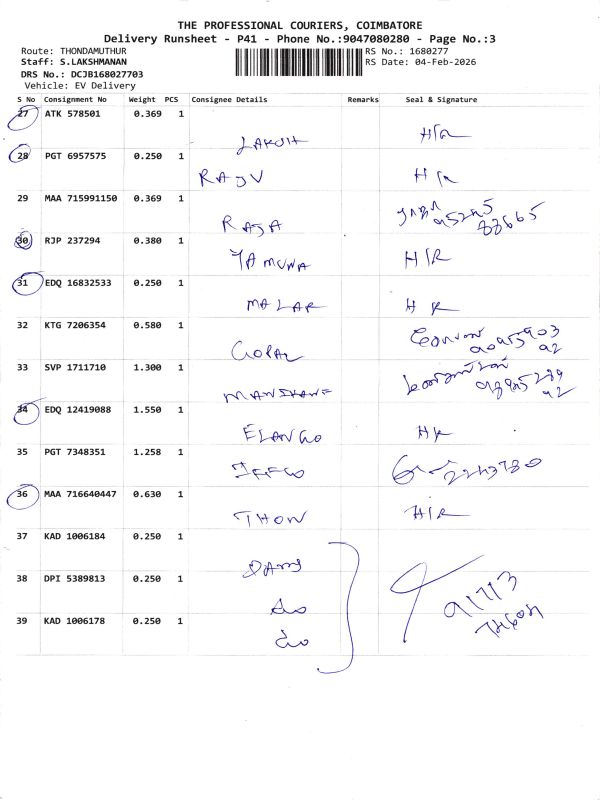 THE PROFESSIONAL COURIERS, COIMBATORE
Delivery Runsheet - P41 - Phone No.:9047080280 - Page No.:3
Route: THONDAMUTHUR RS No.: 1680277
Staff: S.LAKSHMANAN RS Date: 04-Feb-2026
DRS No.: DCJB168027703
Vehicle: EV Delivery
S No Consignment No Weight PCS Consignee Details Remarks Seal & Signature
27 ATK 578501 0.369 1
H/R
28 PGT 6957575 0.250 1
RAJV H/R
29 MAA 715991150 0.369 1
RAJA
30 RJP 237294 0.380 1
YAMUNA H/R
31 EDQ 16832533 0.250 1
MALAR H R
32 KTG 7206354 0.580 1
GOPAL
33 SVP 1711710 1.300 1
34 EDQ 12419088 1.550 1
ELANGO HR
35 PGT 7348351 1.258 1
IFFCO
36 MAA 716640447 0.630 1
THON H/R
37 KAD 1006184 0.250 1
38 DPI 5389813 0.250 1
91713
39 KAD 1006178 0.250 1